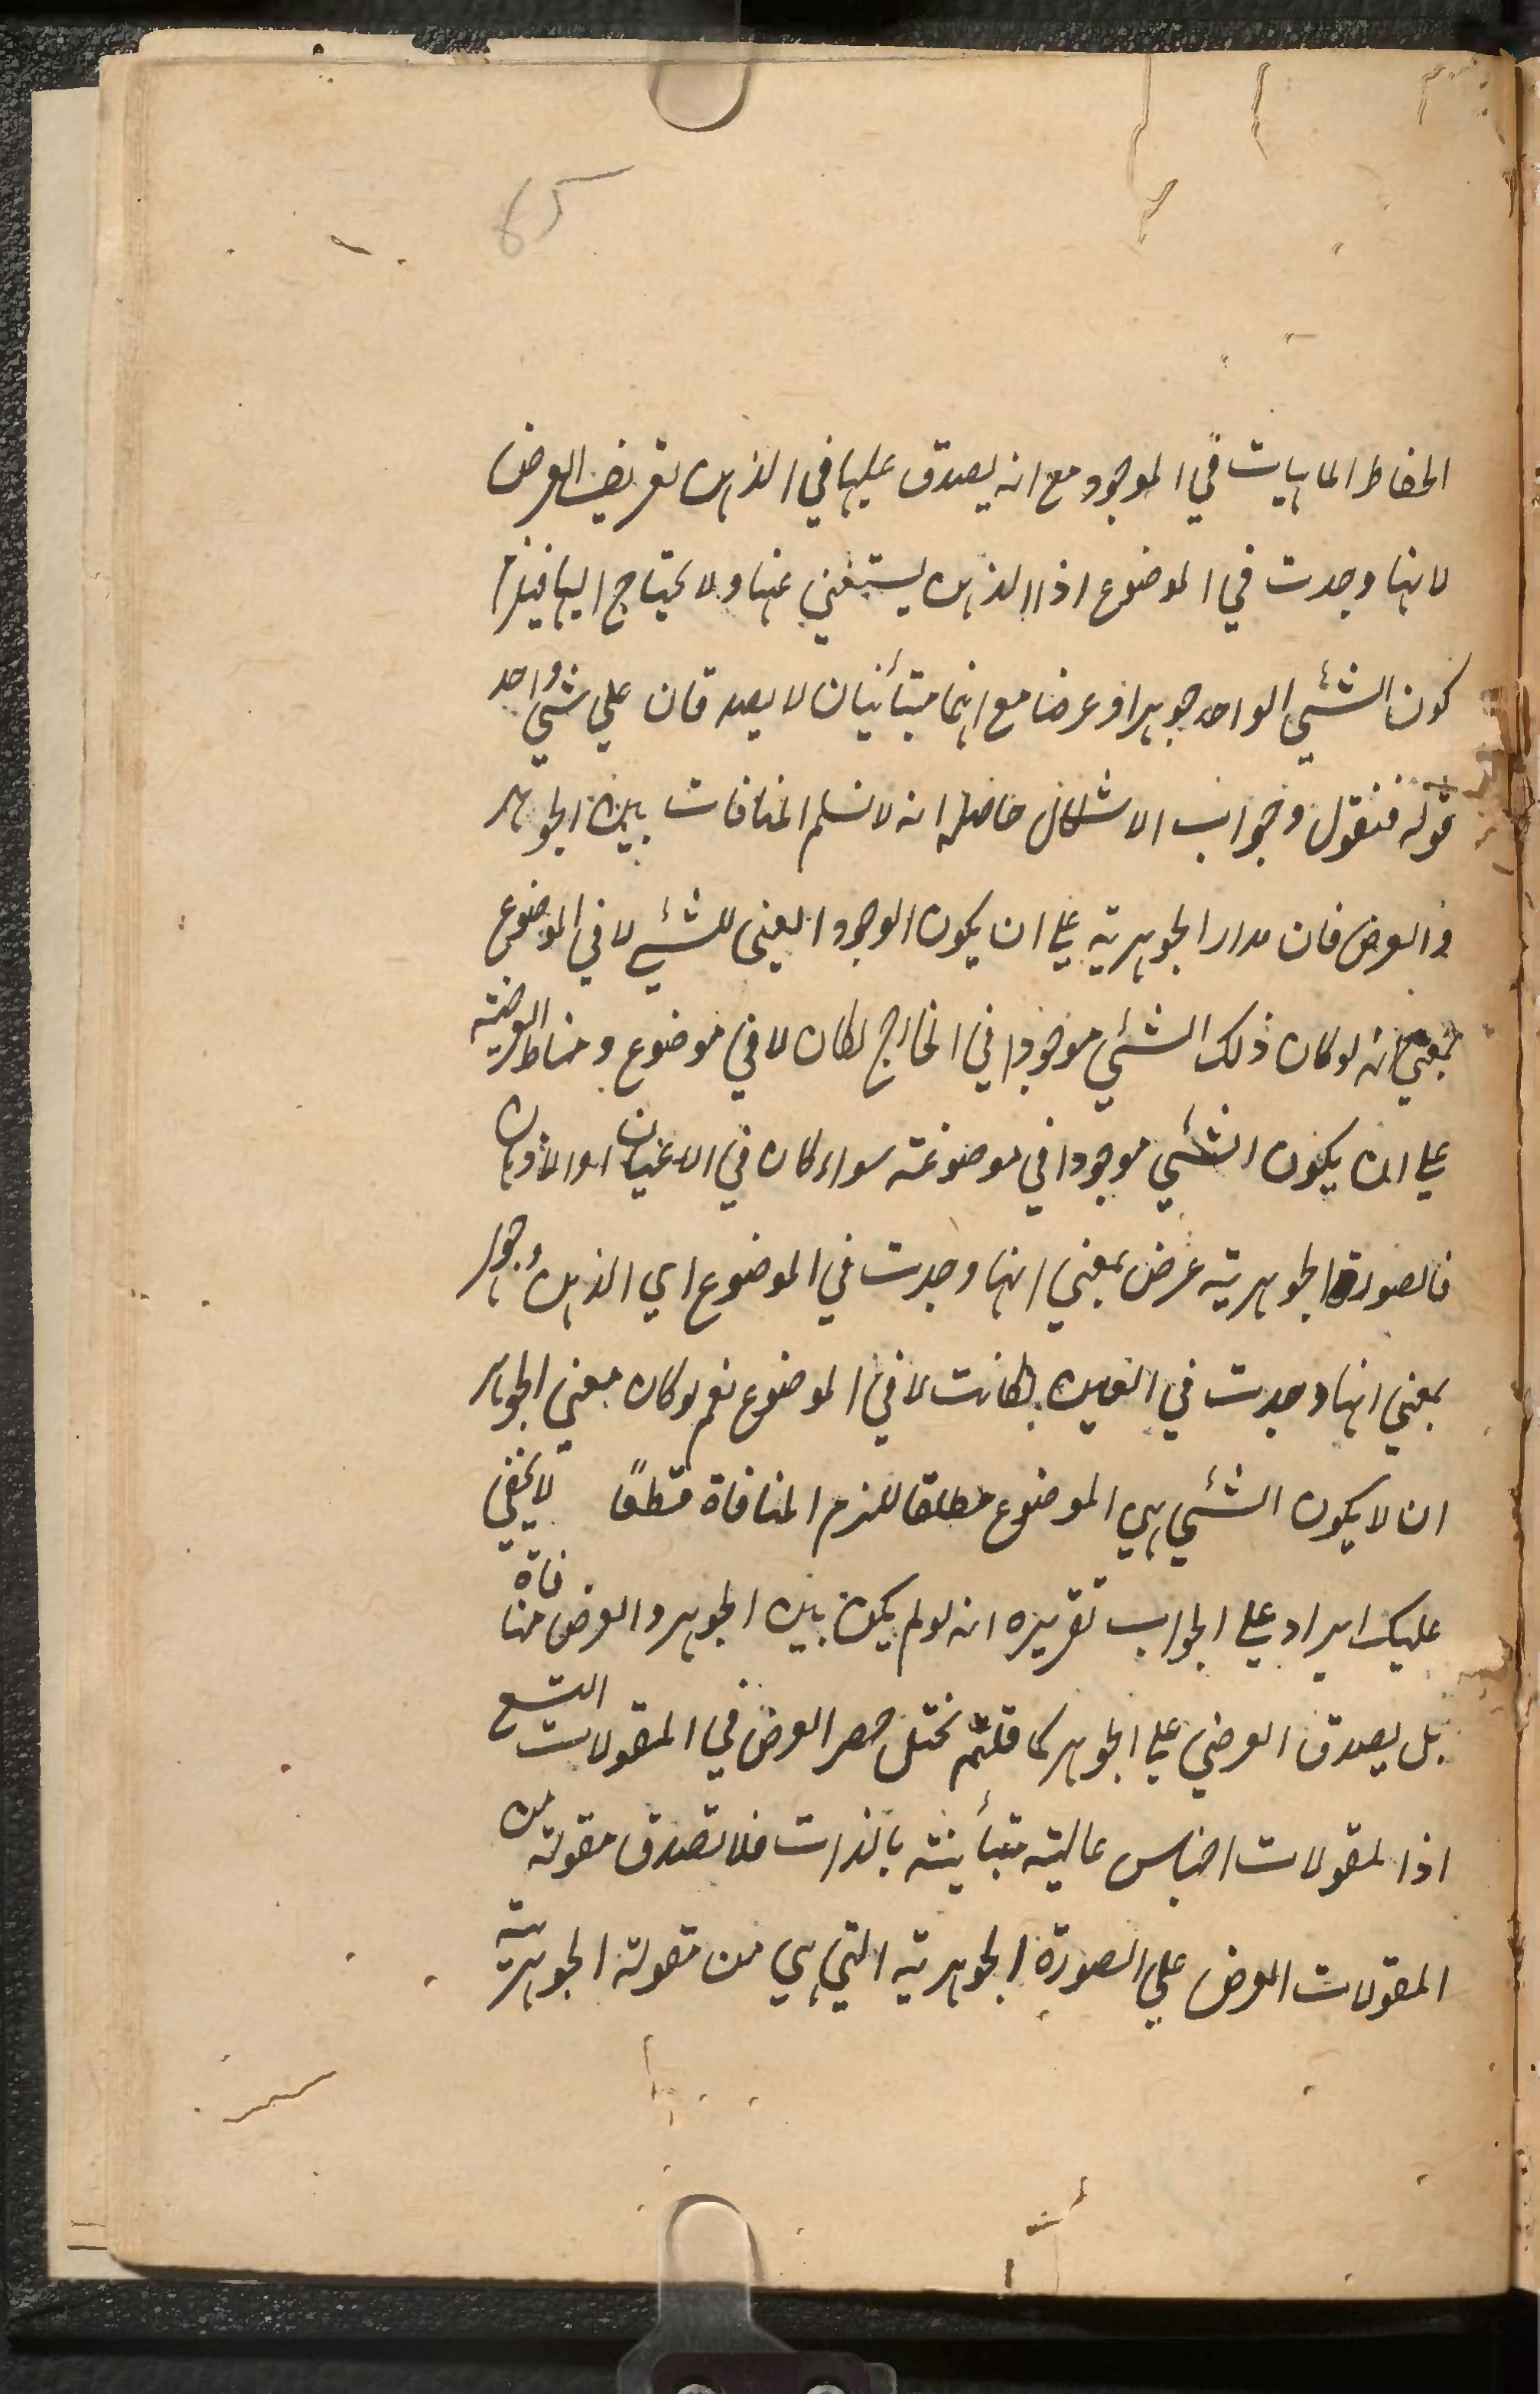 65
انحفاظ الماهيات في الموجود مع انه يصدق عليها في الذهن تعريف العرض
لانها وجدت في الموضوع اذ الذهن يستغني عنها ولا يحتاج اليها فيلزم
كون الشئي الواحد جوهرا وعرضا مع انهما متبائنان لا يصدقان علي شئي واحد
قوله فنقول وجواب الاشكال حاصله انه لا نسلم المنافات بين الجوهر
والعرض فان مدار الجوهرية علي ان يكون الوجود العيني للشئي لا في الموضوع
بمعني انه لو كان ذلك الشئي موجودا في الخارج لكان لا في موضوع ومناط العرضية
علي ان يكون الشئي موجودا في موضوعه سواء كان في الاعيان او الاذهان
فالصورة الجوهرية عرض بمعني انها وجدت في الموضوع اي الذهن وجوهر
بمعني انها وجدت في العين لكانت لا في الموضوع نعم لو كان معني الجوهر
ان لا يكون الشئي هي الموضوع مطلقا للزم المنافاة قطعًا لا يخفي
عليك ايراد علي الجواب تقريره انه لو لم يكن بين الجوهر والعرض منافاة
بل يصدق العرضي علي الجوهر كما قلتم يختل حصر العرض في المقولات التسع
اذ المقولات اجناس عالية متبأينة بالذات فلا تصدق مقولة من
المقولات العرض علي الصورة الجوهرية التي هي من مقولة الجوهرية